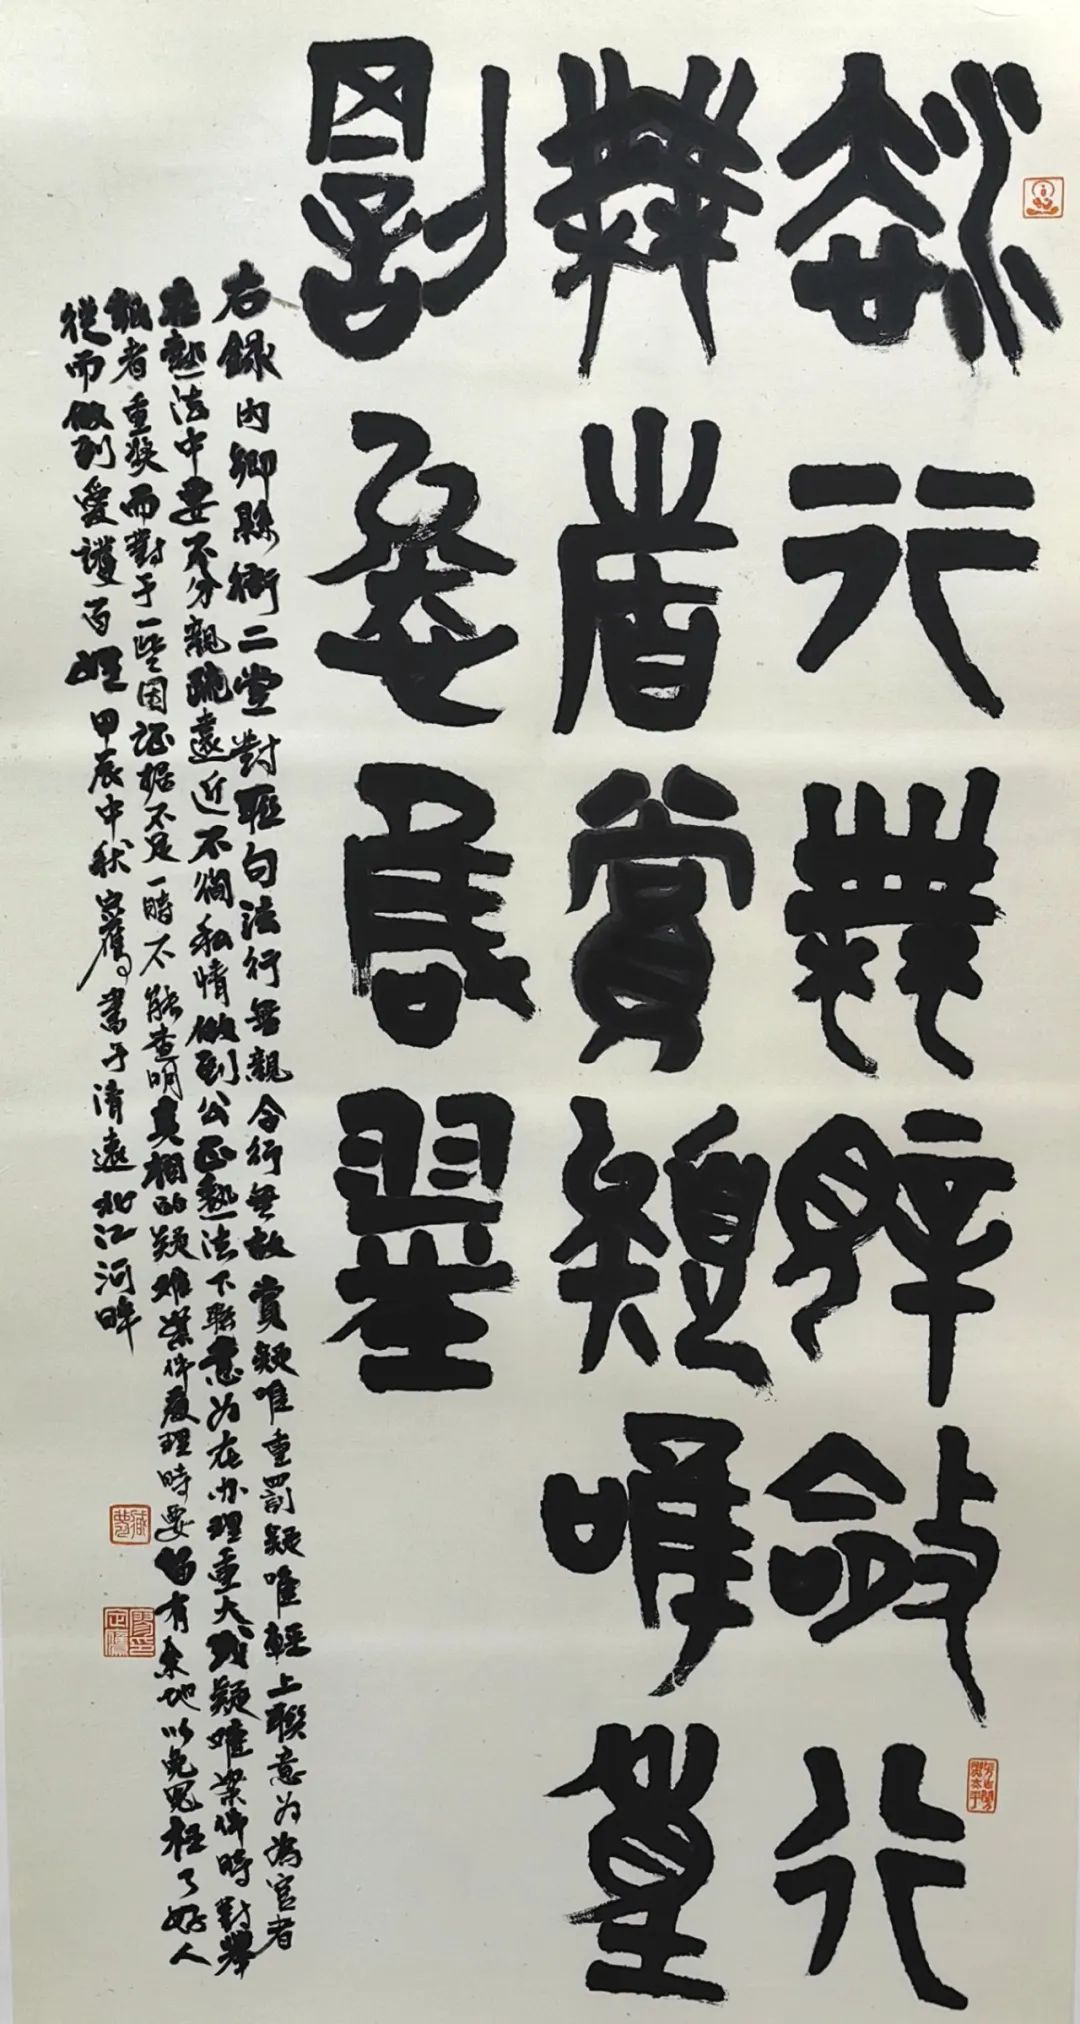 法行無親令行
無故賞疑唯重
罰疑唯輕
右録内鄉縣衙二堂對聯句法行無親令行無故賞疑唯重罰疑唯輕上聯意为為官者
在執法中要不分親疏遠近不徇私情做到公正執法下联意为在办理重大或疑难案件時對舉
報者重奖而對于一些因証据不足一時不能查明真相的疑难案件處理時要留有余地以免冤枉了好人
從而做到愛護百姓甲辰中秋正鷹書于清遠北江河畔